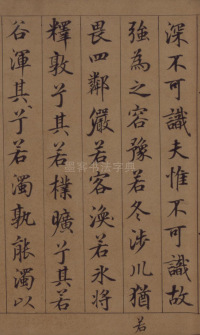 深不可識夫惟不可識故
強為之容豫若冬涉川猶
畏四鄰儼若客渙若冰將
釋敦兮其若樸曠兮其若
谷渾其兮若濁孰能濁以
若